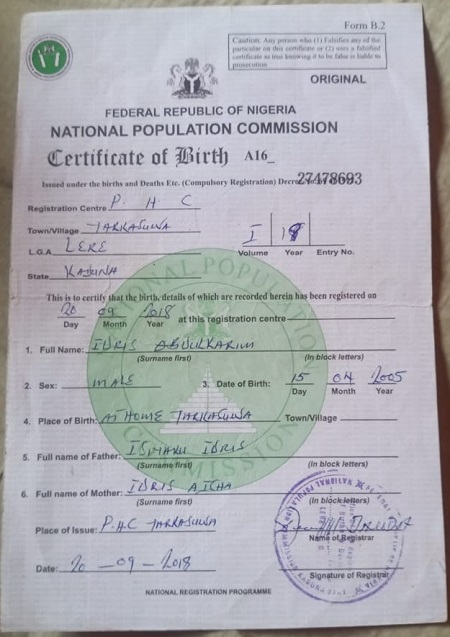 Form B.2
Caution: Any person who (1) Falsifies any of the
particular on this certificate or (2) uses a falsified
certificate as less knowing it to be false is liable to
prosecution
ORIGINAL
FEDERAL REPUBLIC OF NIGERIA
NATIONAL POPULATION COMMISSION
Certificate of Birth A16_
Issued under the births and Deaths Etc. (Compulsory Registration) Decree 27478693
Registration Centre P H C
Town/Village TARKASUWA
L.G.A. LERE I 18
Volume Year Entry No.
State KADUNA
This is to certify that the birth, details of which are recorded herein has been registered on
20 09 2018 at this registration centre
Day Month Year
1. Full Name: IDRIS ABDULKARIM
(Surname first) (In block letters)
2. Sex: MALE 3. Date of Birth: 15 04 2005
Day Month Year
4. Place of Birth: AT HOME TARKASUWA Town/Village
5. Full name of Father: ISMAILU IDRIS
(Surname first) (In block letters)
6. Full name of Mother: IDRIS AISHA
(Surname first) (In block letters)
Place of Issue: P.H.C TARKASUWA
Name of Registrar
Date: 20 - 09 - 2018
Signature of Registrar
NATIONAL REGISTRATION PROGRAMME
NATIONAL POPULATION COMMISSION